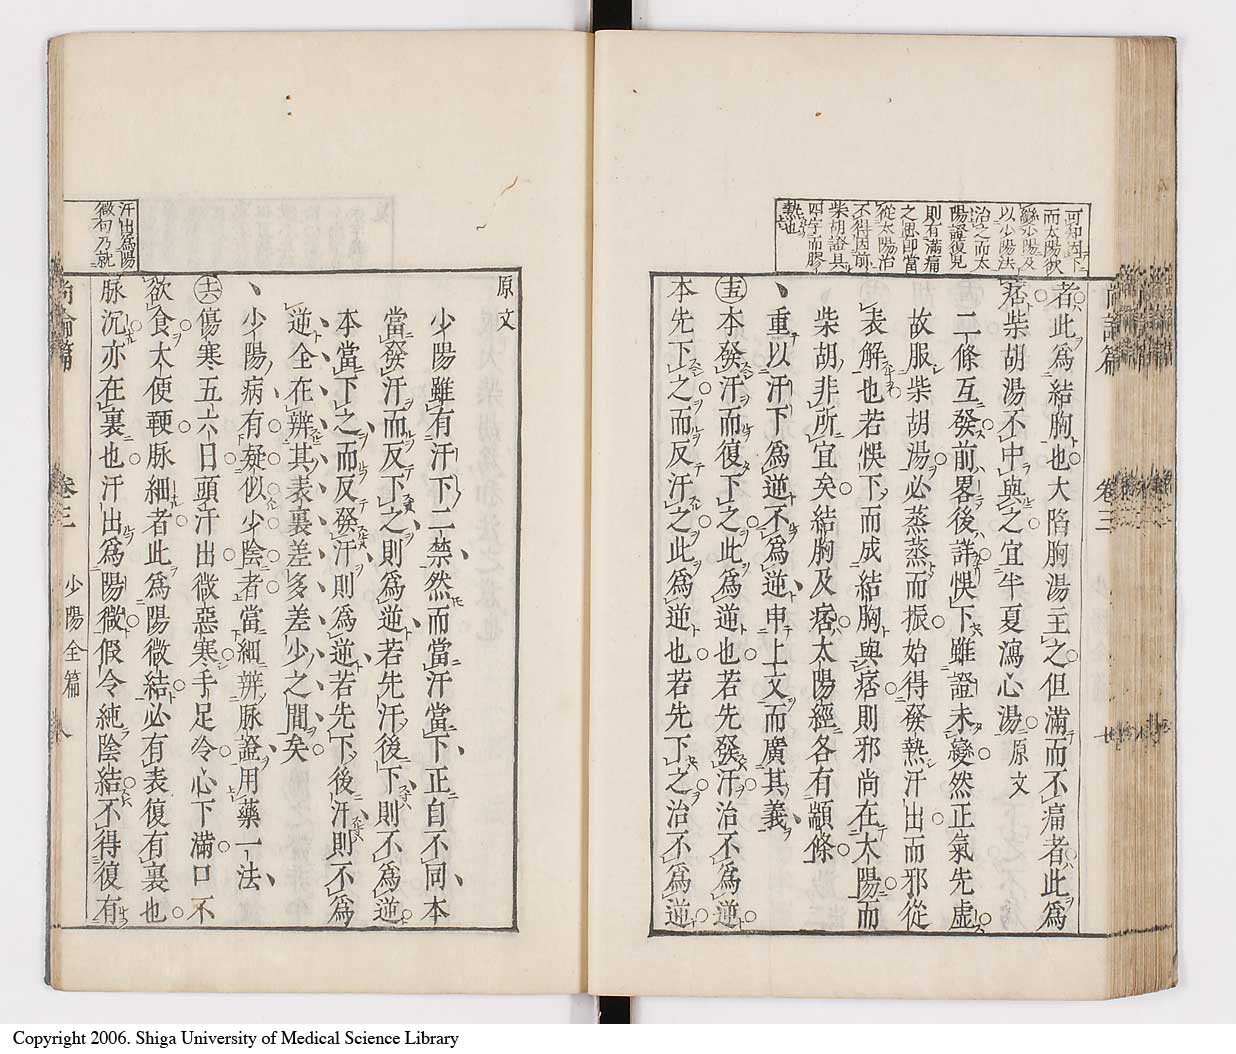 可知因下
而太陽欲
變少陽及
以少陽法
治之而太
陽證復見
則有滿痛
之患即當
從太陽治
不得因前
柴胡證具
四字而膠
熱也
尚論篇 卷三 少陽全篇
者此爲結胸也大陷胸湯主之但滿而不痛者此爲
痞柴胡湯不中與之宜半夏瀉心湯原文
二條互發前畧後詳悞下雖證未變然正氣先虛
故服柴胡湯必蒸蒸而振始得發熱汗出而邪從
表解也若悞下而成結胸與痞則邪尚在太陽而
柴胡非所宜矣結胸及痞太陽經各有顓條
重以汗下爲逆不爲逆申上文而廣其義
十五本發汗而復下之此爲逆也若先發汗治不爲逆
本先下之而反汗之此爲逆也若先下之治不爲逆
原文
少陽雖有汗下二禁然而當汗當下正自不同本
當發汗而反下之則爲逆若先汗後下則不爲逆
本當下之而反發汗則爲逆若先下後汗則不爲
逆全在辨其表裏差多差少之間矣
少陽病有疑似少陰者當細辨脉證用藥一法
十六傷寒五六日頭汗出微惡寒手足冷心下滿口不
欲食大便鞕脉細者此爲陽微結必有表復有裏也
脉沉亦在裏也汗出爲陽微假令純陰結不得復有
汗出爲陽
微句乃就
尚論篇 卷三 少陽全篇 八
Copyright 2006. Shiga University of Medical Science Library